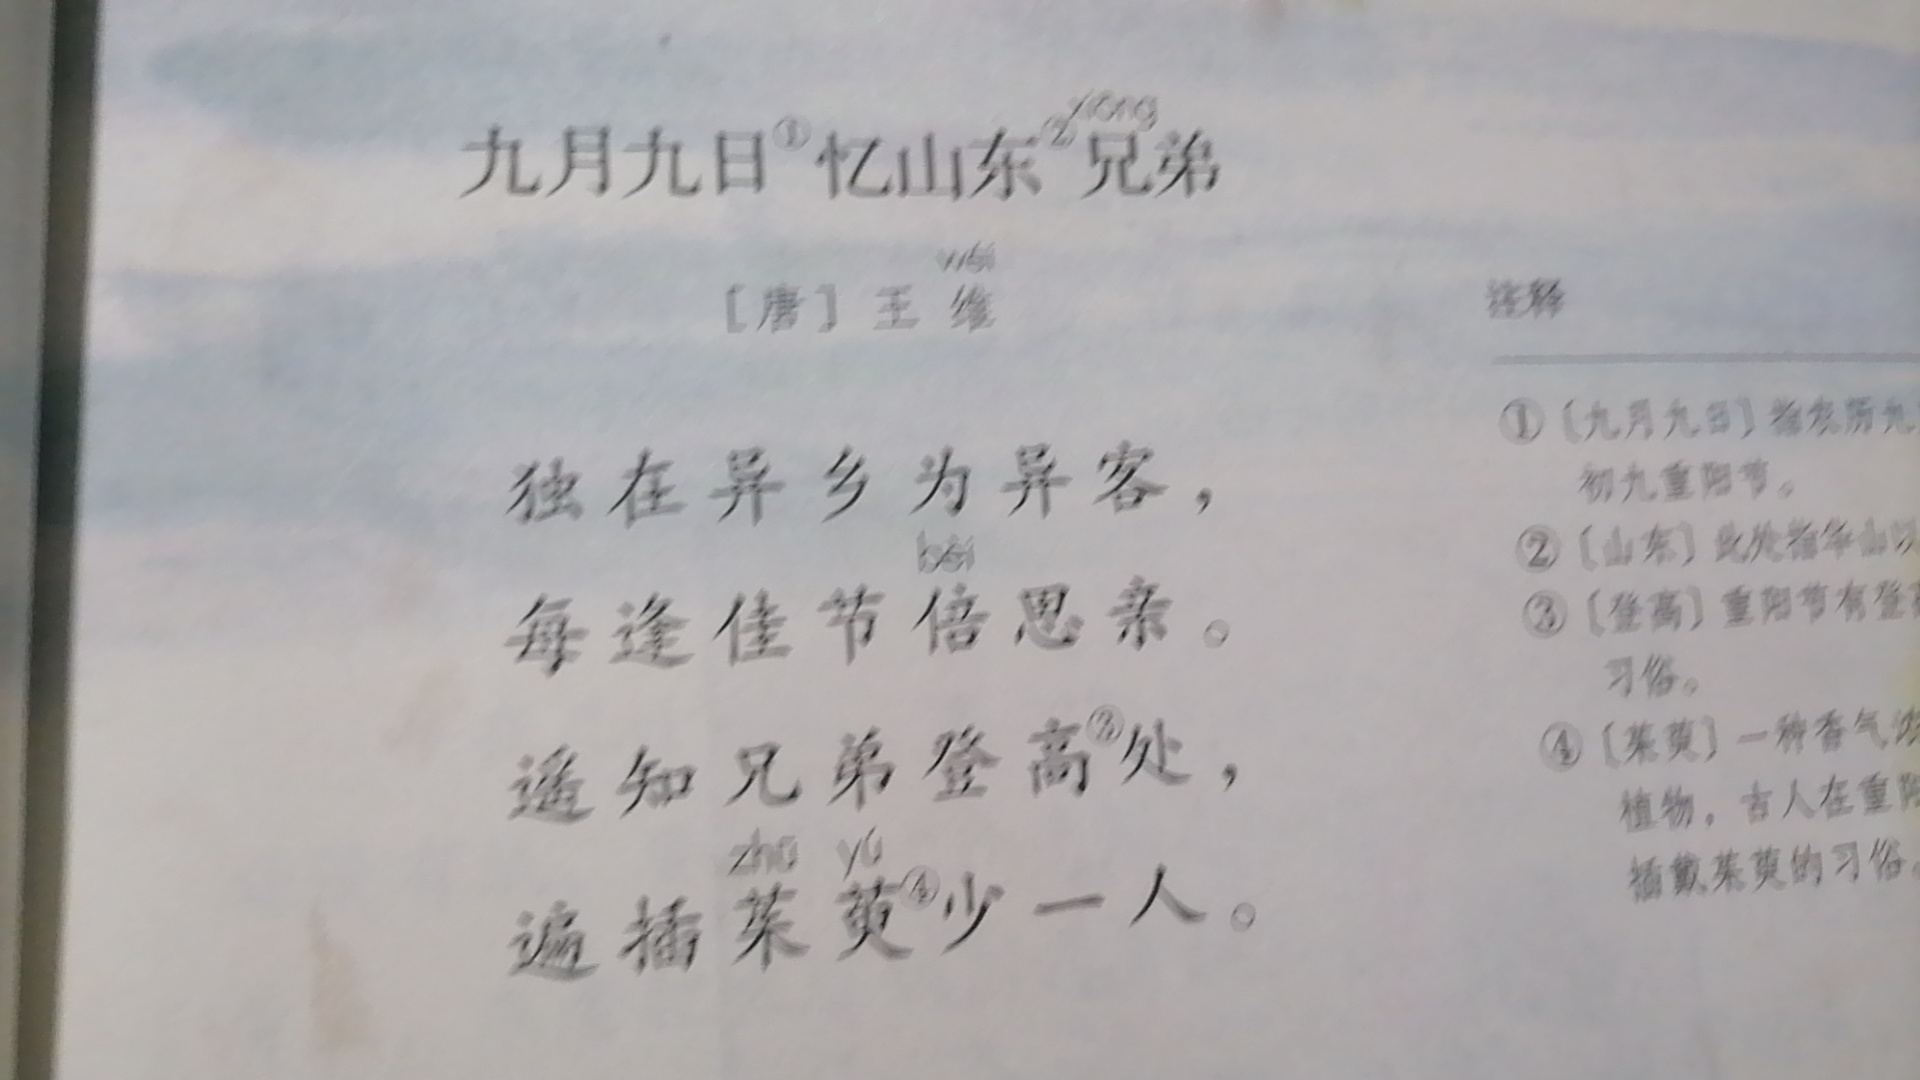 xiōng
九月九日①忆山东②兄弟
wéi
［唐］王维
独在异乡为异客，
bèi
每逢佳节倍思亲。
遥知兄弟登高③处，
zhū yú
遍插茱萸④少一人。
注释
①〔九月九日〕指农历九
初九重阳节。
②〔山东〕此处指华山以
③〔登高〕重阳节有登高
习俗。
④〔茱萸〕一种香气浓
植物，古人在重阳
插戴茱萸的习俗。